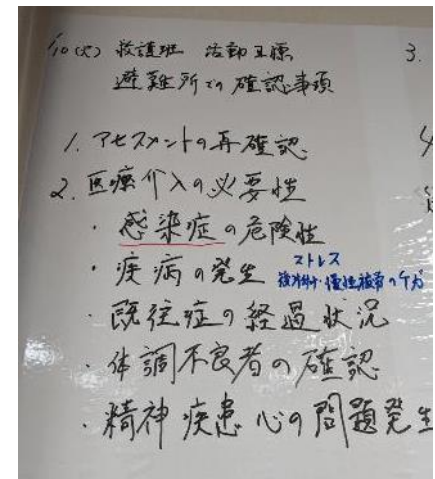 1/10(火) 救護班 活動目標
避難所での確認事項
1. アセスメントの再確認
2. 医療介入の必要性
・感染症の危険性
・疾病の発生 ストレス
・既往症の経過状況
・体調不良者の確認
・精神疾患 心の問題発生
3.